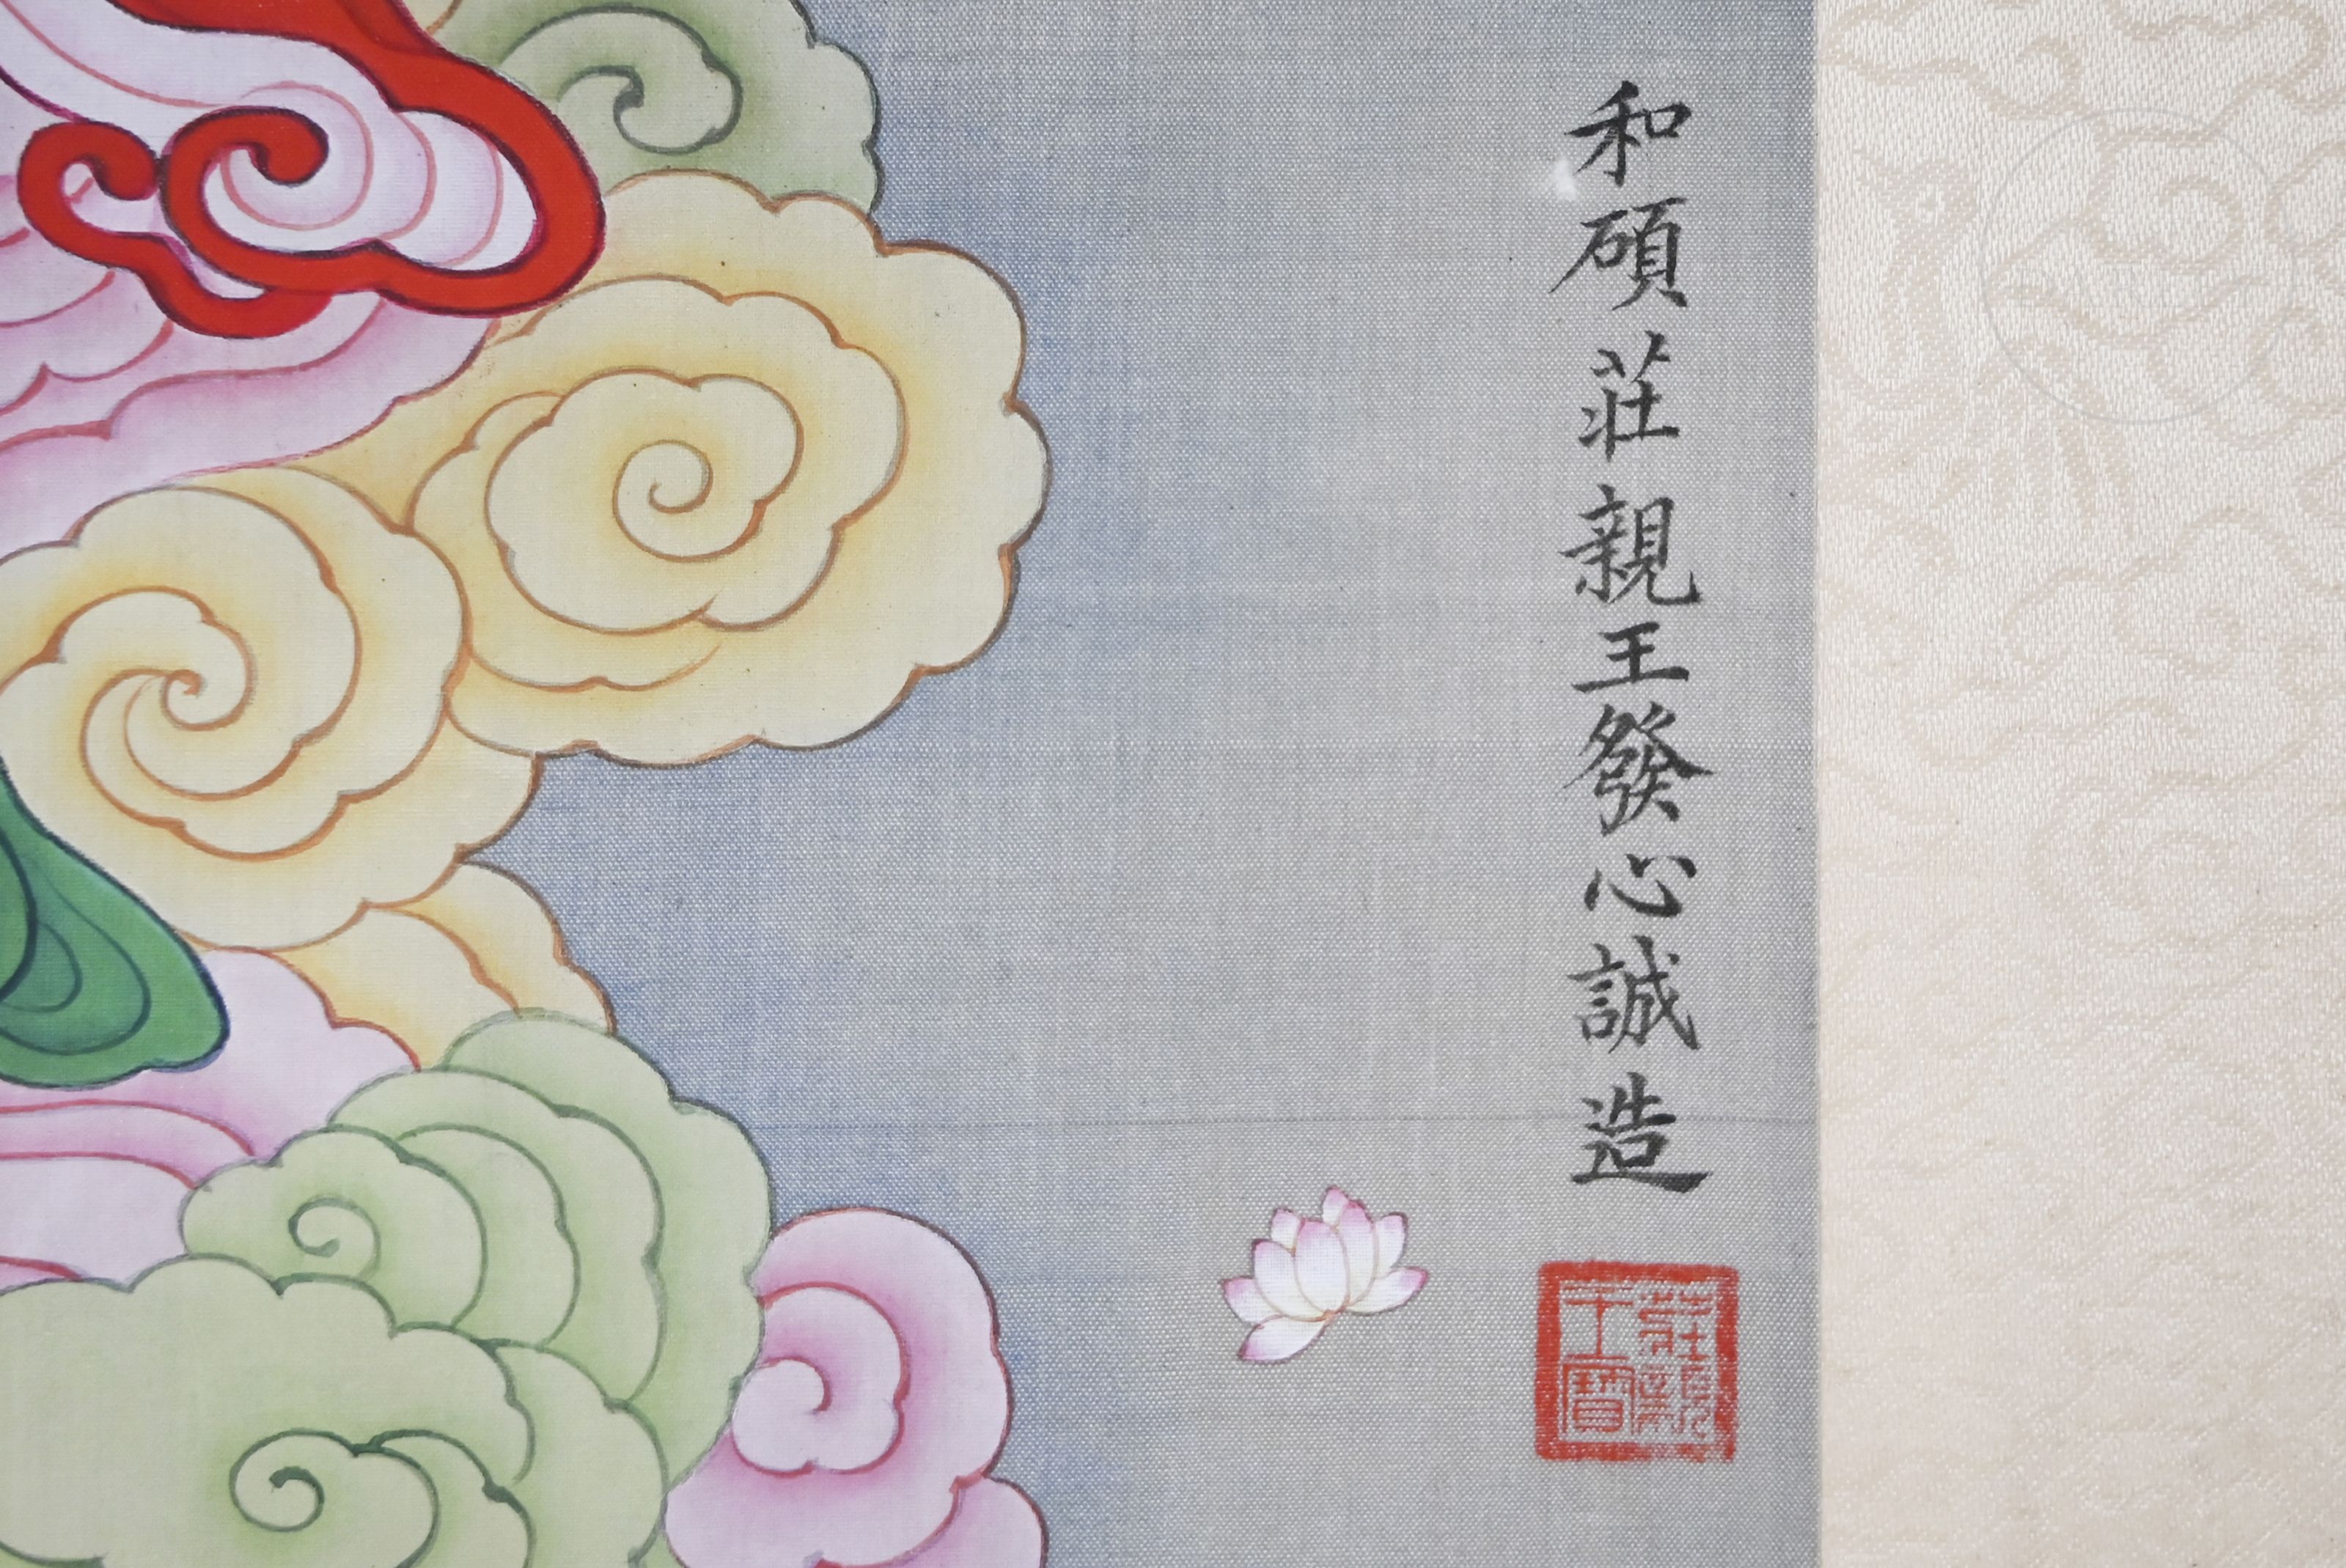 和碩莊親王發心誠造
莊親
王寶